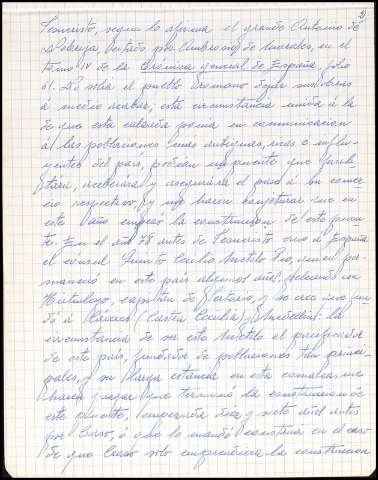 Jesucristo, segun lo afirma el grande Antonio de
Nebrija, citado por Ambrosio de Morales, en el
tomo IV de la Crónica general de España, folio
61. No solia el pueblo romano dejar sus obras
á medio acabar, esta circunstancia unida á la
de que esta calzada ponia en comunicacion
á las poblaciones mas antiguas, ricas e influ-
yentes del país, pedian un puente que facili-
tára, acelerára y asegurára el paso á su comer-
cio respectivo, y me hacen conjeturar que en
este año empezó la construccion de este puen-
te. En el año 78 antes de Jesucristo vino á España
el cónsul Quinto Cecilio Metelo Pio, quien per-
maneció en este país algunos años peleando con
Hirtuleyo, capitán de Sertorio, y se cree que fun-
dó á Cáceres (Castra Cecilia) y Medellin: la
circunstancia de ser este Metelo el pacificador
de este país, fundador de poblaciones tan princi-
pales, y su larga estancia en esta comarca me
hacen juzgar que terminó la construccion de
este puente, empezada diez y siete años antes
por Craso, ó que lo mandó construir en el caso
de que Craso solo emprendiera la construccion